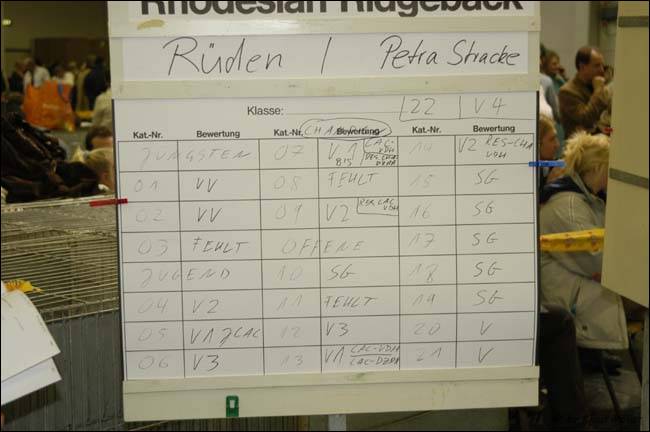 Rhodesian Ridgeback
Rüden / Petra Stracke
Klasse: 22 V4
Kat.-Nr. Bewertung Kat.-Nr. Bewertung Kat.-Nr. Bewertung
JÜNGSTEN 07 V1 CAC-VDH 14 V2 RES-CHA VDH
BIS
01 VV 08 FEHLT 15 SG
02 VV 09 V2 RES CAC VDH 16 SG
03 FEHLT OFFENE 17 SG
JUGEND 10 SG 18 SG
04 V2 11 FEHLT 19 SG
05 V1 JCAC 12 V3 20 V
06 V3 13 V1 CAC-VDH 21 V